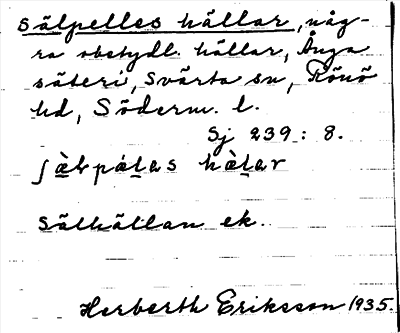 Sälpelles hällar, någ-
ra obetydl. hällar, Ånga
säteri, Svärta sn, Rönö
hd, Söderm. l.
Sj 239 : 8.
hὰḷar
Sälhällan ek.
Herberth Eriksson 1935.